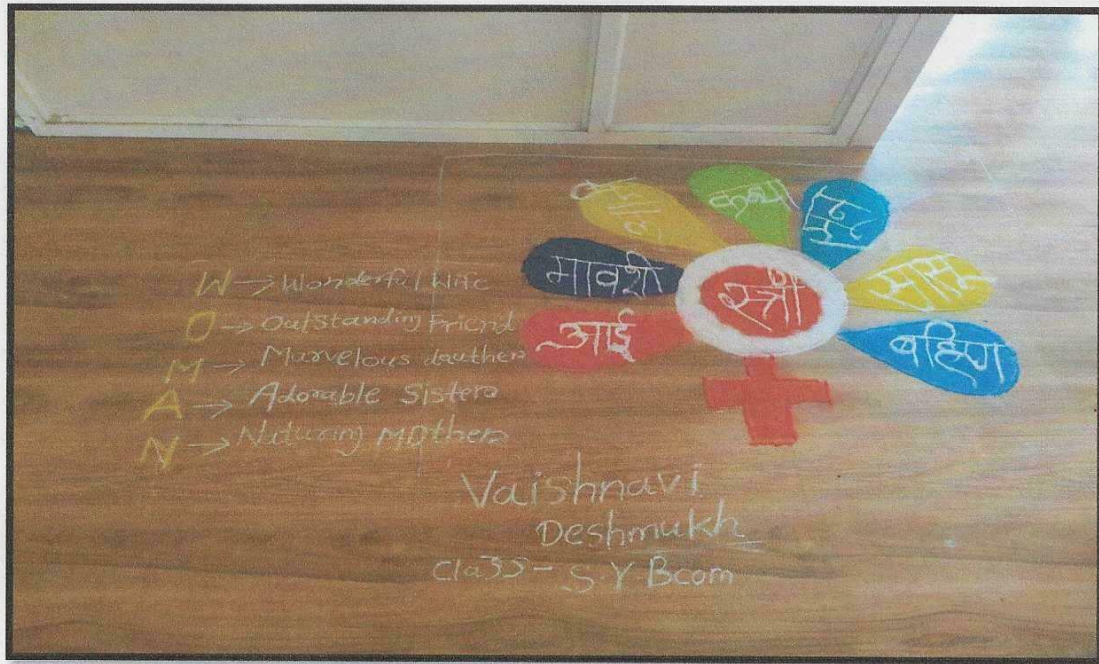 W → Wonderful Wife
O → Outstanding Friend
M → Marvelous douther
A → Adorable Sister
N → Nuturing MOther
कन्या
सासू
मावशी
स्त्री
आई
बहिण
Vaishnavi
Deshmukh
Class - S.Y.Bcom